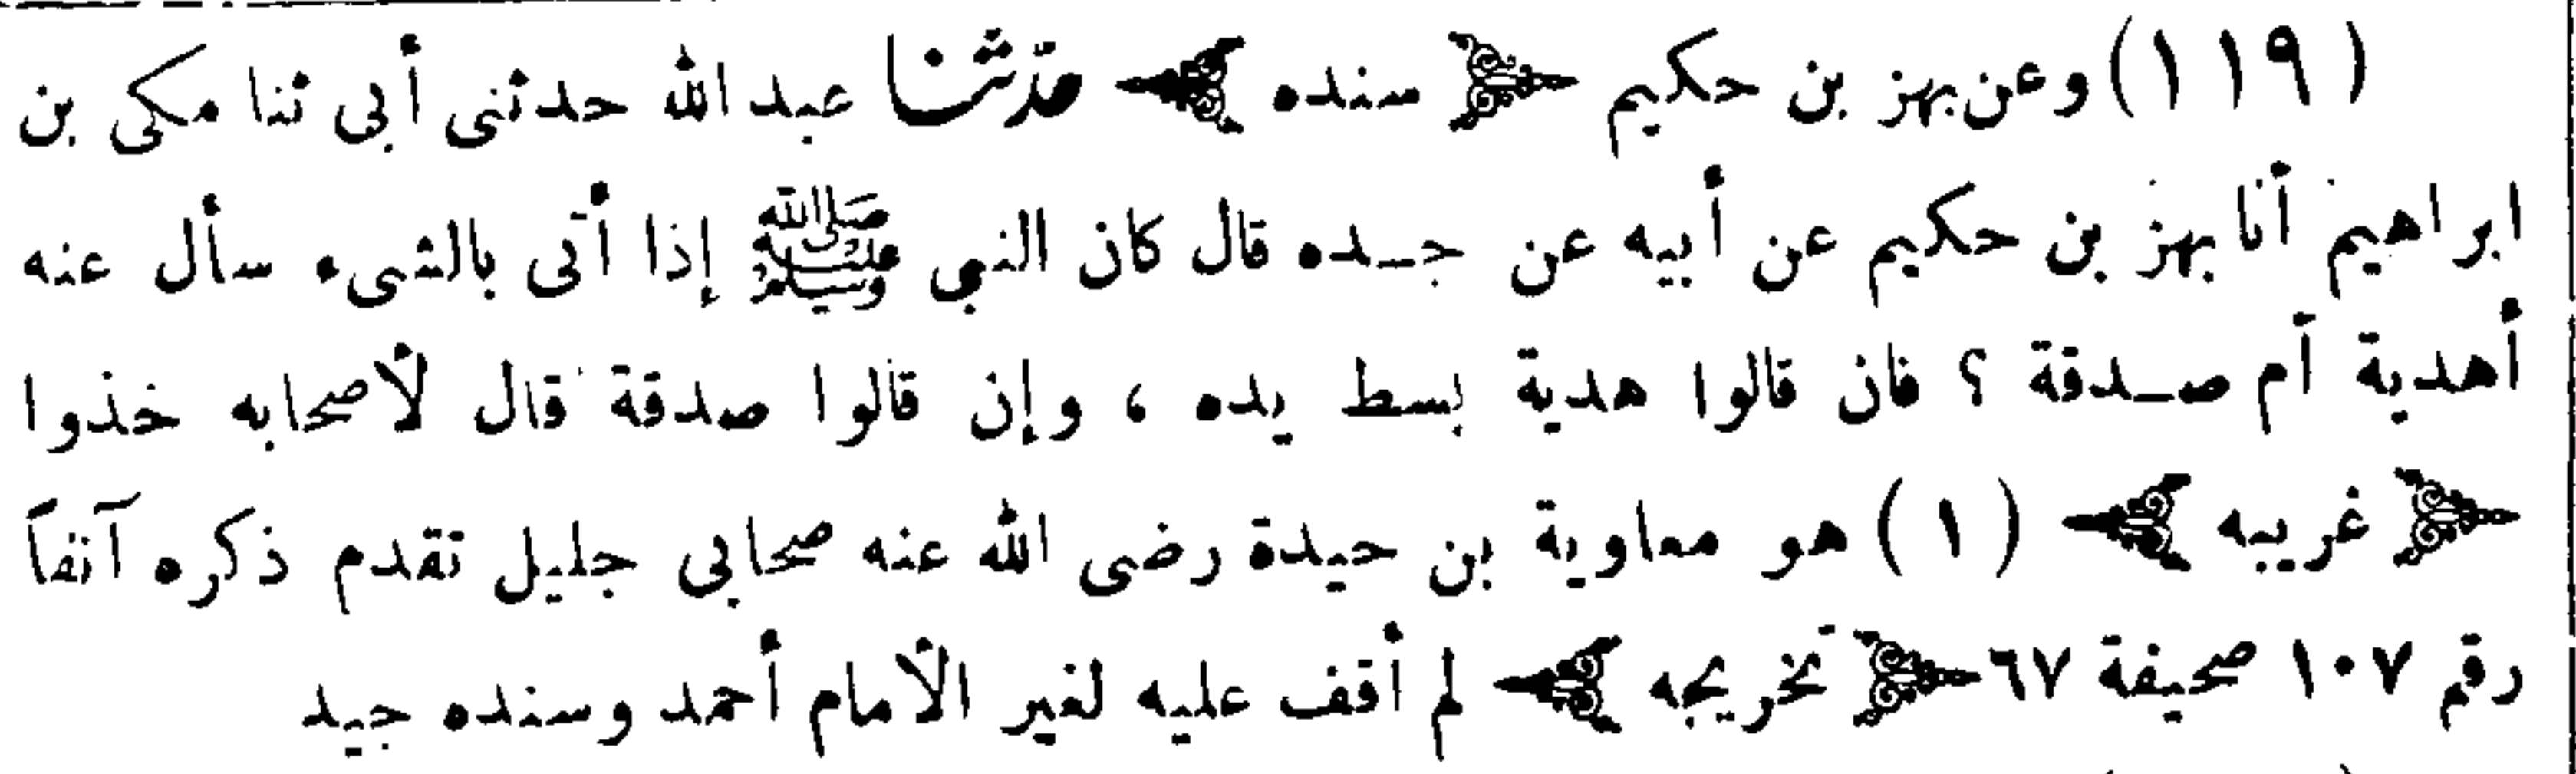 (١١٩) وعن بهز بن حكيم ﴿ سنده ﴾ حدّثنا عبد الله حدثنى أبى ثنا مكى بن
ابراهيم أنا بهز بن حكيم عن أبيه عن جـده قال كان النبى ﷺ إذا أتى بالشىء سأل عنه
أهدية أم صـدقة ؟ فان قالوا هدية بسط يده ، وإن قالوا صدقة قال لأصحابه خذوا
﴿ غريبه ﴾ (١) هو معاوية بن حيدة رضى الله عنه صحابى جليل تقدم ذكره آنفاً
رقم ١٠٧ صحيفة ٦٧ ﴿ تخريجه ﴾ لم أقف عليه لغير الأمام أحمد وسنده جيد